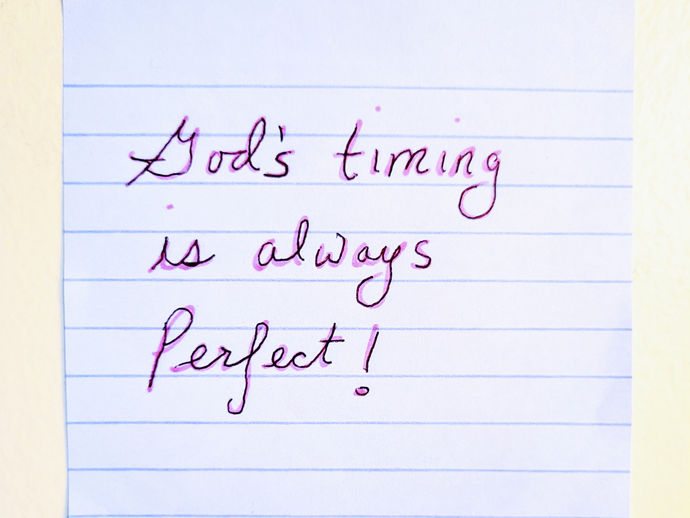 God's timing
is always
Perfect!